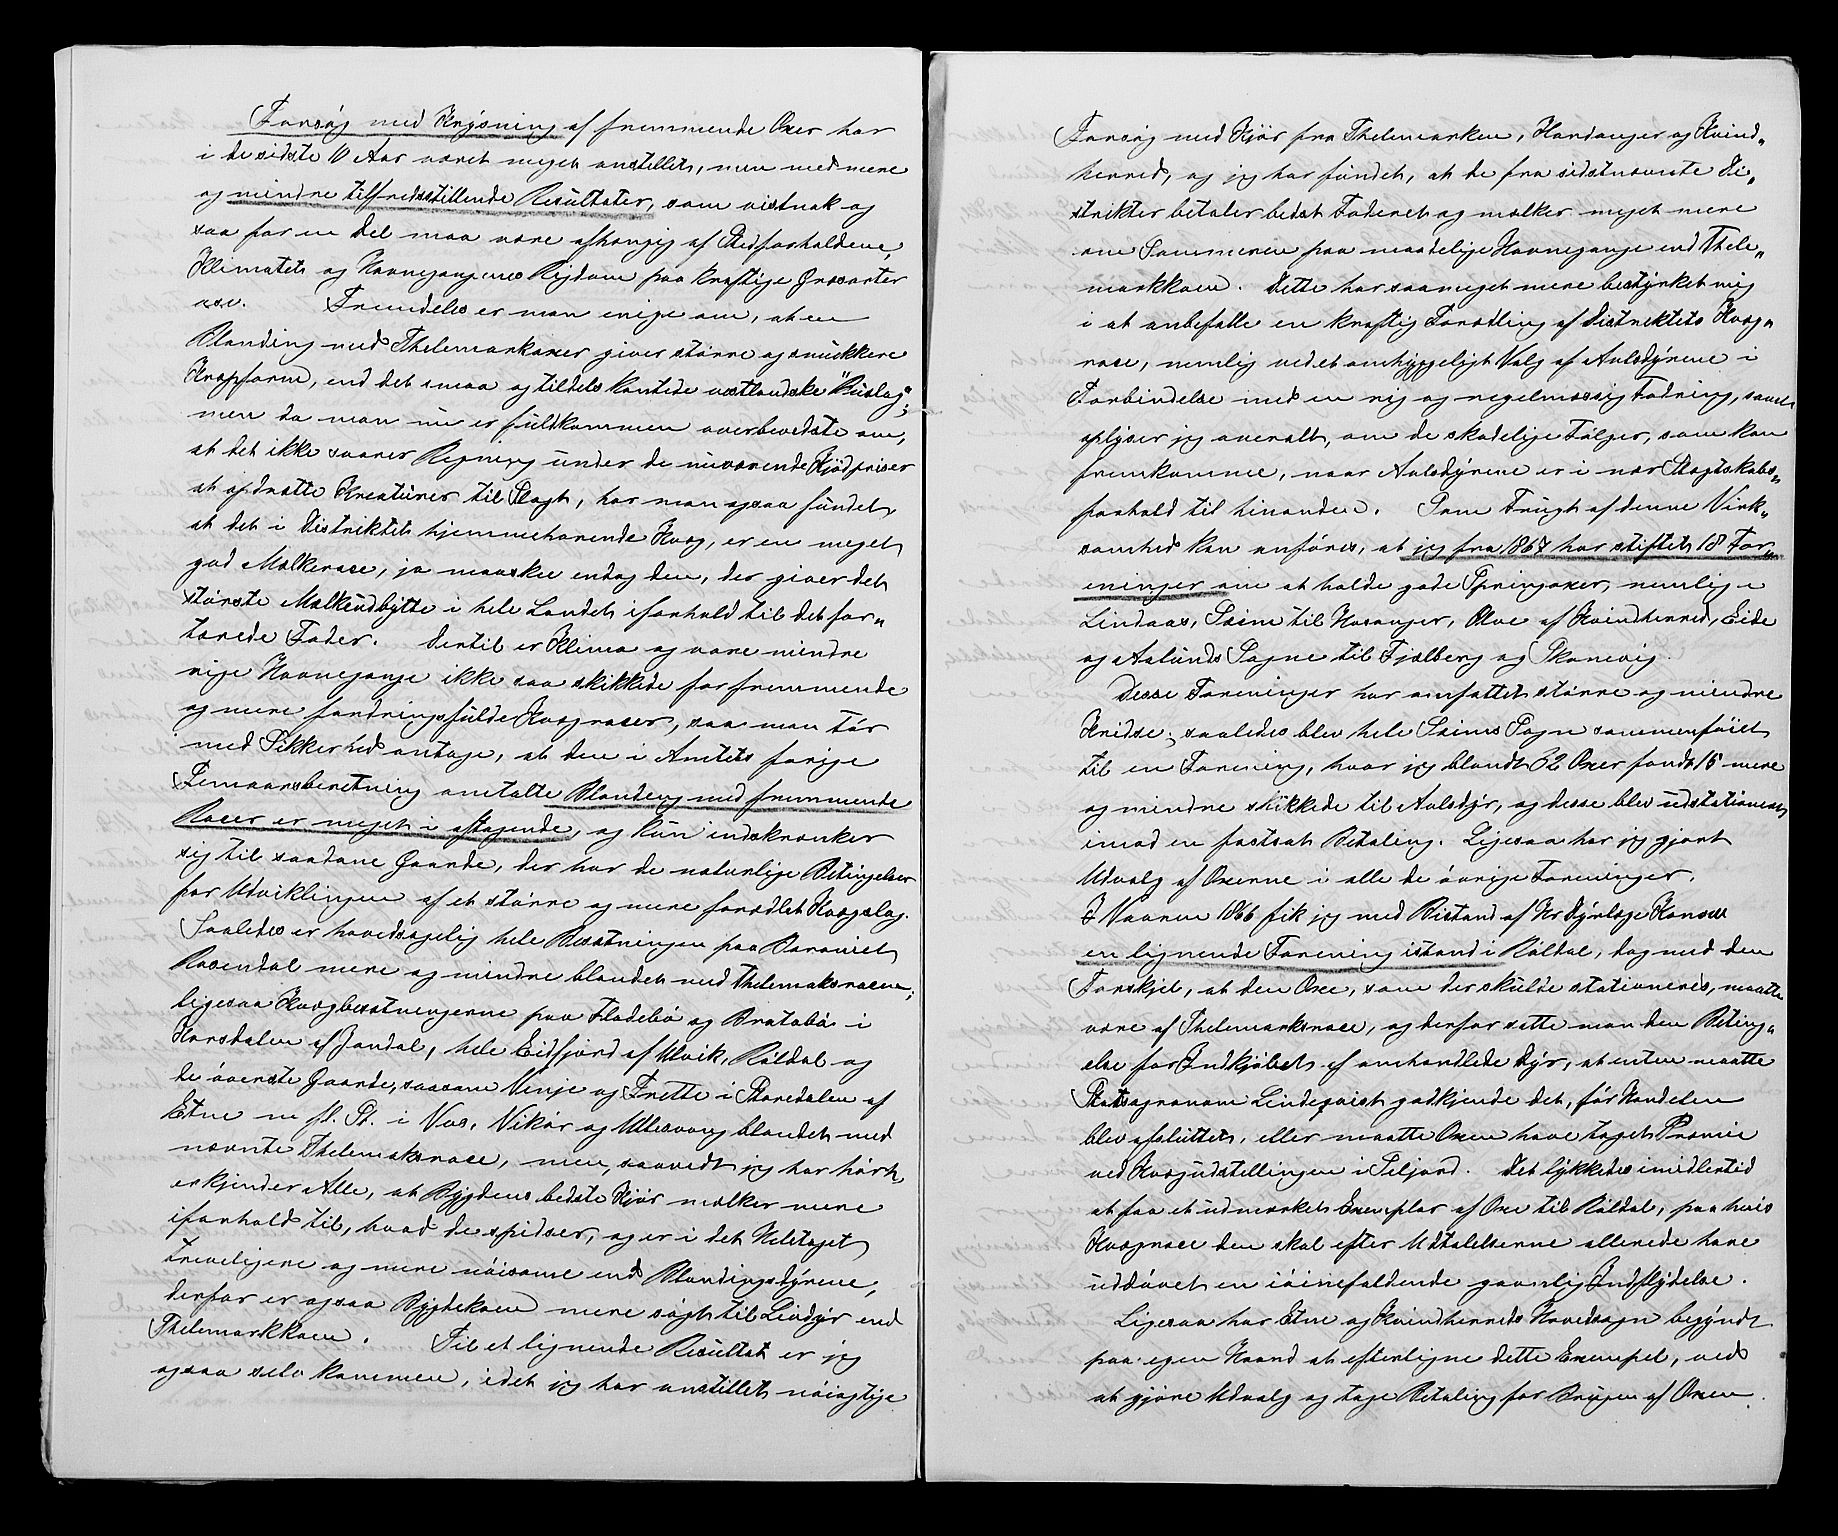 Forsøg med Krysning af fremmende Oxer har
i de sidste 10 Aar været meget anstillet, men med mere
og mindre tilfredsstillende Resultater, som vistnok og
saa for en Del maa være afhængig af Stedforholdene,
Klimatet og Havnegangenes Rigdom paa kraftige Græsarter
osv. Fremdeles er man enige om, at en
Blanding med Thelemarkoxer giver større og smukkere
Kropform, end det smaa og tildels kantede vestlandske "Buslag";
men da man nu er fuldkommen overbeviste om,
at det ikke svarer Regning under de nuværende Kjødpriser
at opdrætte Kreaturer til Slagt, har man ogsaa fundet
at det i Distriktet hjemmehørende Kvæg, er en meget
god Melkerace, ja maaskee endog den, der giver det
største Melkeudbytte i hele Landet i forhold til det for„
tærede Foder. Dertil er Klima og vore mindre
rige Havnegange ikke saa skikkede for fremmende
og mere fordringsfulde Kvægracer, saa man tør
med Sikkerhed antage, at den i Amtets forige
Femaarsberetning omtalte Blanding med fremmende
Racer er meget i aftagende, og kun indskrænker
sig til saadane Gaarde, der har de naturlige Betingelser
for Udviklingen af et større og mere forædlet Kvægslag.
Saaledes er hovedsagelig hele Besætningen paa Baroniet
Rosendal mere og mindre blandet med Thelemaksracen,
ligesaa Kvægbesætningerne paa Fladebø og Bratabø i
Korsdalen af Jondal, hele Eidfjord af Ulvik, Røldal og
de øverste Gaarde, saasom Vinje og Frette i Stordalen af
Etne m. fl. St. i Vos, Vikør og Ullesvang blandet med
nævnte Thelemaksrace, men, saavidt jeg har hørt,
erkjender Alle, at Bygdens bedste Kjør mælker mere
i forhold til, hvad de spidser, og er i det Heletaget
trevligere og mere nøisome end Blandingsdyrene,
derfor er ogsaa Bygdekoen mere søgt til Livdyr end
Thelemarkkoen. Til et lignende Resultat er jeg
ogsaa selv kommen, idet jeg har anstillet nøiagtige
Forsøg med Kjør fra Thelemarken, Hardanger og Kvind„
herred, og jeg har fundet, at de fra sidstnævnte Di„
strikter betaler bedst Foderet og mælker meget mere
om Sommeren paa maadelige Havnegange end Thele„
markkoen. Dette har saameget mere bestyrket mig
i at anbefalle en kraftig Forædling af Distriktets Kvæg„
race, nemlig ved et omhyggeligt Valg af Avlsdyrene i
Forbindelse med en rig og regelmæssig Fodring, samt
oplyser jeg overalt, om de skadelige Følger, som kan
fremkomme, naar Avlsdyrene er i nær Slægtskabs„
forhold til hinanden. Som Frugt af denne Virk„
somhed kan anføres, at jeg fra 1867 har stiftet 18 For„
eninger om at holde gode Springoxer, nemlig i
Lindaas, Sæim til Hosanger, Ølve af Kvindherred, Eide
og Aalunds Sogne til Fjælberg og Skonevig.
Desse Foreninger har omfattet større og mindre
Kridse; saaledes blev hele Sæims Sogn sammenføiet
til en Forening, hvor jeg blandt 32 Oxer fandt 15 mere
og mindre skikkede til Avlsdyr, og desse blev udstationeret
imod en fastsat Betaling. Ligesaa har jeg gjort
Udvalg af Oxerne i alle de øvrige Foreninger.
I Vaaren 1866 fik jeg med Bistand af Hr Dyrlæge Hansen
en lignende Forening istand i Røldal, dog med den
Forskjel, at den Oxe, som der skulde stationeres, maatte
være af Thelemarksrace, og derfor satte man den Beting„
else for Indkjøbet af omhandlede Dyr, at enten maatte
Statsagronom Lindeqvist godkjende det, før Handelen
blev afsluttet, eller maatte Oxen have taget Præmie
ved Kvægudstillingen i Siljord. Det lykkedes imidlertid
at faa et udmærket Exemplar af Oxe til Røldal, paa hvis
Kvægrace den skal efter Udtalelserne allerede have
uddøvet en iøinefaldende gavnlig Indflydelse.
Ligesaa har Etne og Kvindherreds Hovedsogn begyndt
paa egen Haand at efterligne dette Exempel, ved
at gjøre Udvalg og tage Betaling for Brugen af Oxen.